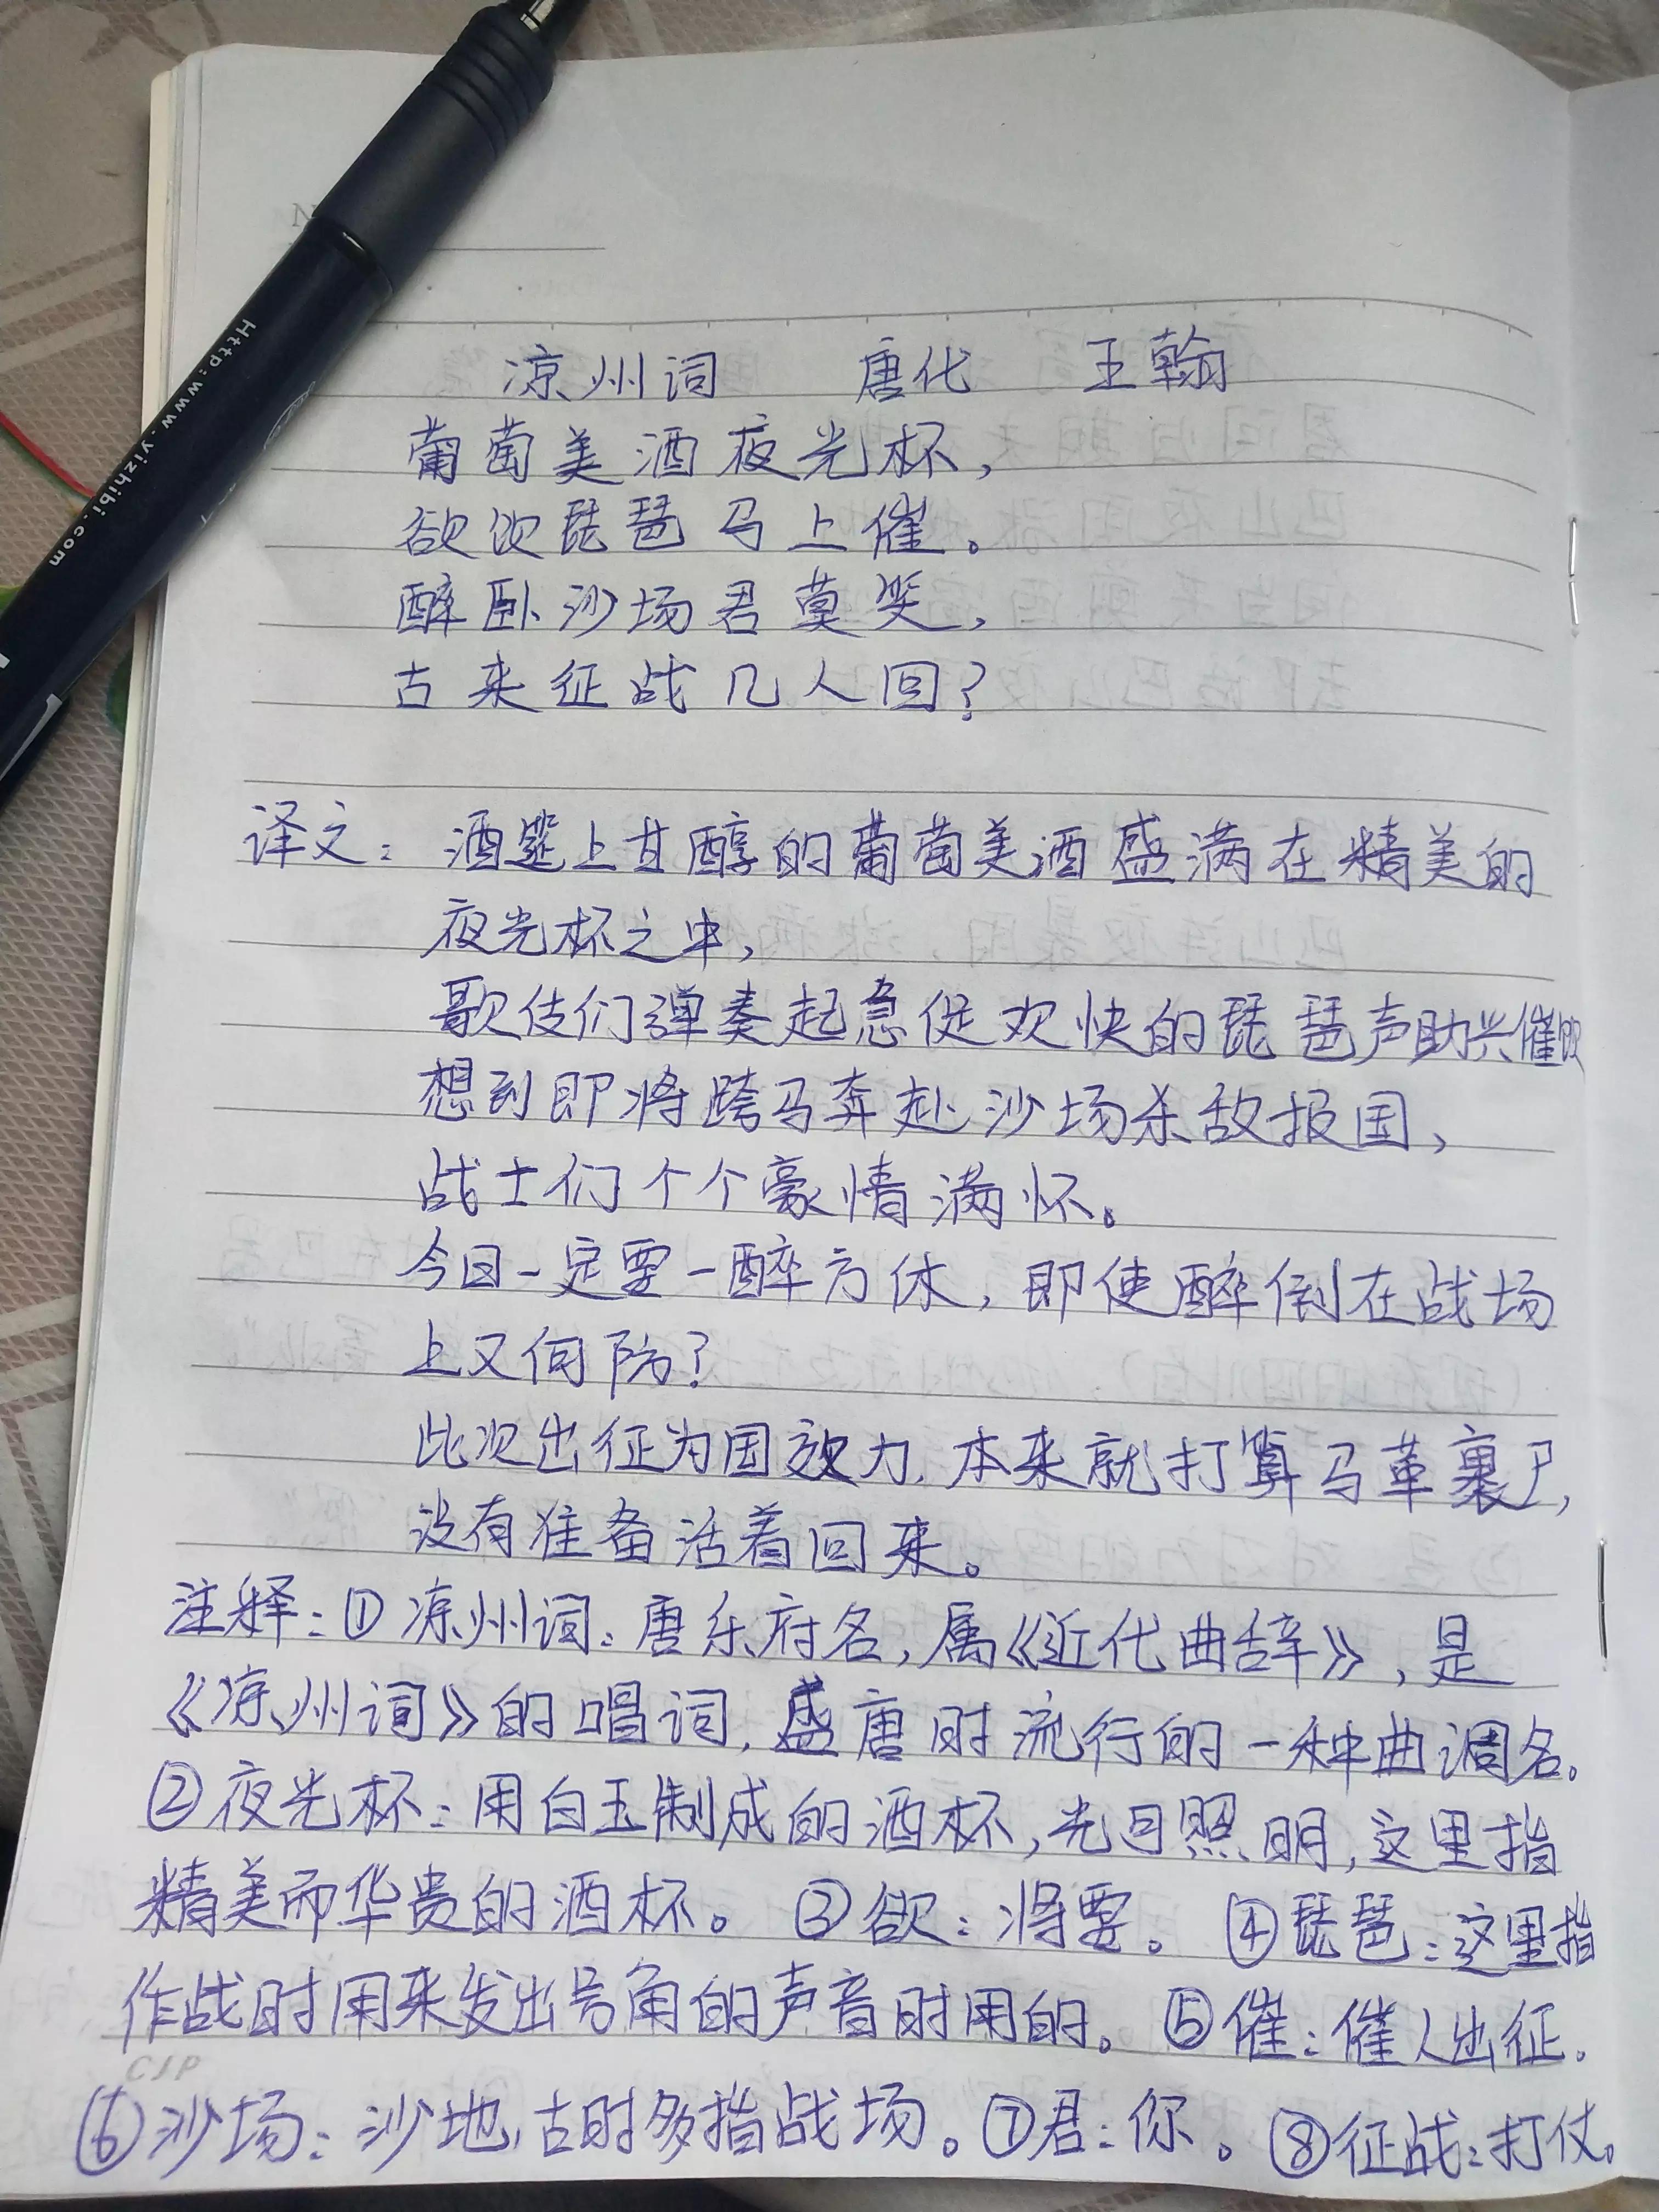 Http:www.yizhibi.com
凉州词 唐化 王翰
葡萄美酒夜光杯,
欲饮琵琶马上催。
醉卧沙场君莫笑,
古来征战几人回?
译文: 酒筵上甘醇的葡萄美酒盛满在精美的
夜光杯之中,
歌伎们弹奏起急促欢快的琵琶声助兴催饮
想到即将跨马奔赴沙场杀敌报国,
战士们个个豪情满怀。
今日一定要一醉方休, 即使醉倒在战场
上又何防?
此次出征为国效力, 本来就打算马革裹尸,
没有准备活着回来。
注释: ① 凉州词: 唐乐府名, 属《近代曲辞》, 是
《凉州词》的唱词, 盛唐时流行的一种曲调名。
②夜光杯: 用白玉制成的酒杯, 光可照明, 这里指
精美而华贵的酒杯。 ③欲: 将要。 ④琵琶: 这里指
作战时用来发出号角的声音时用的。 ⑤催: 催人出征.
CJP
⑥沙场: 沙地, 古时多指战场。⑦君: 你。⑧征战: 打仗。